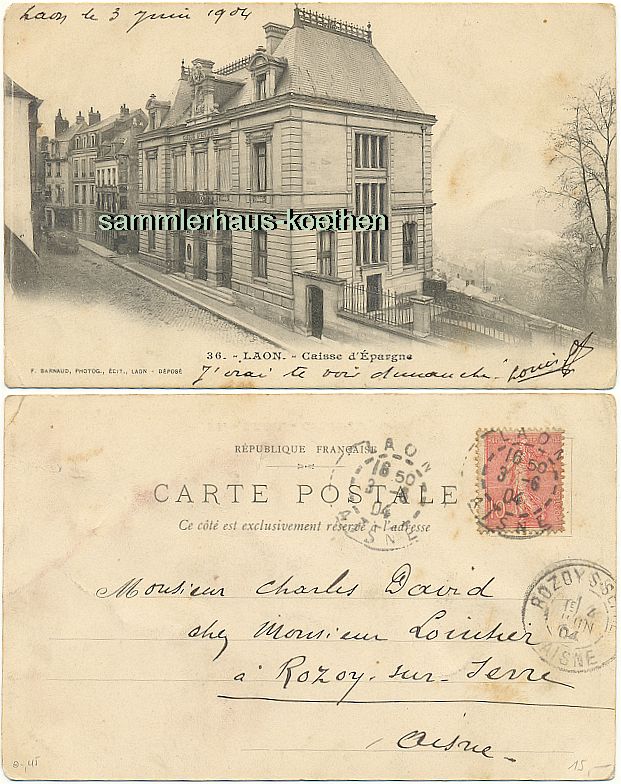 Laon le 3 juin 1904
CAISSE D'ÉPARGNE
sammlerhaus-koethen
36. - LAON. - Caisse d'Épargne
F. BARNAUD, PHOTOG., ÉDIT., LAON - DÉPOSÉ
J'irai te voir dimanche. Louis
RÉPUBLIQUE FRANÇAISE
CARTE POSTALE
Ce côté est exclusivement réservé à l'adresse
LAON
16 50
3 -6
04
AISNE
LAON
16 50
3 -6
04
AISNE
Monsieur Charles David
chez Monsieur Lointier
à Rozoy-sur-Serre
Aisne
ROZOY-S-SERRE
1E 4
JUIN
04
AISNE
15,-